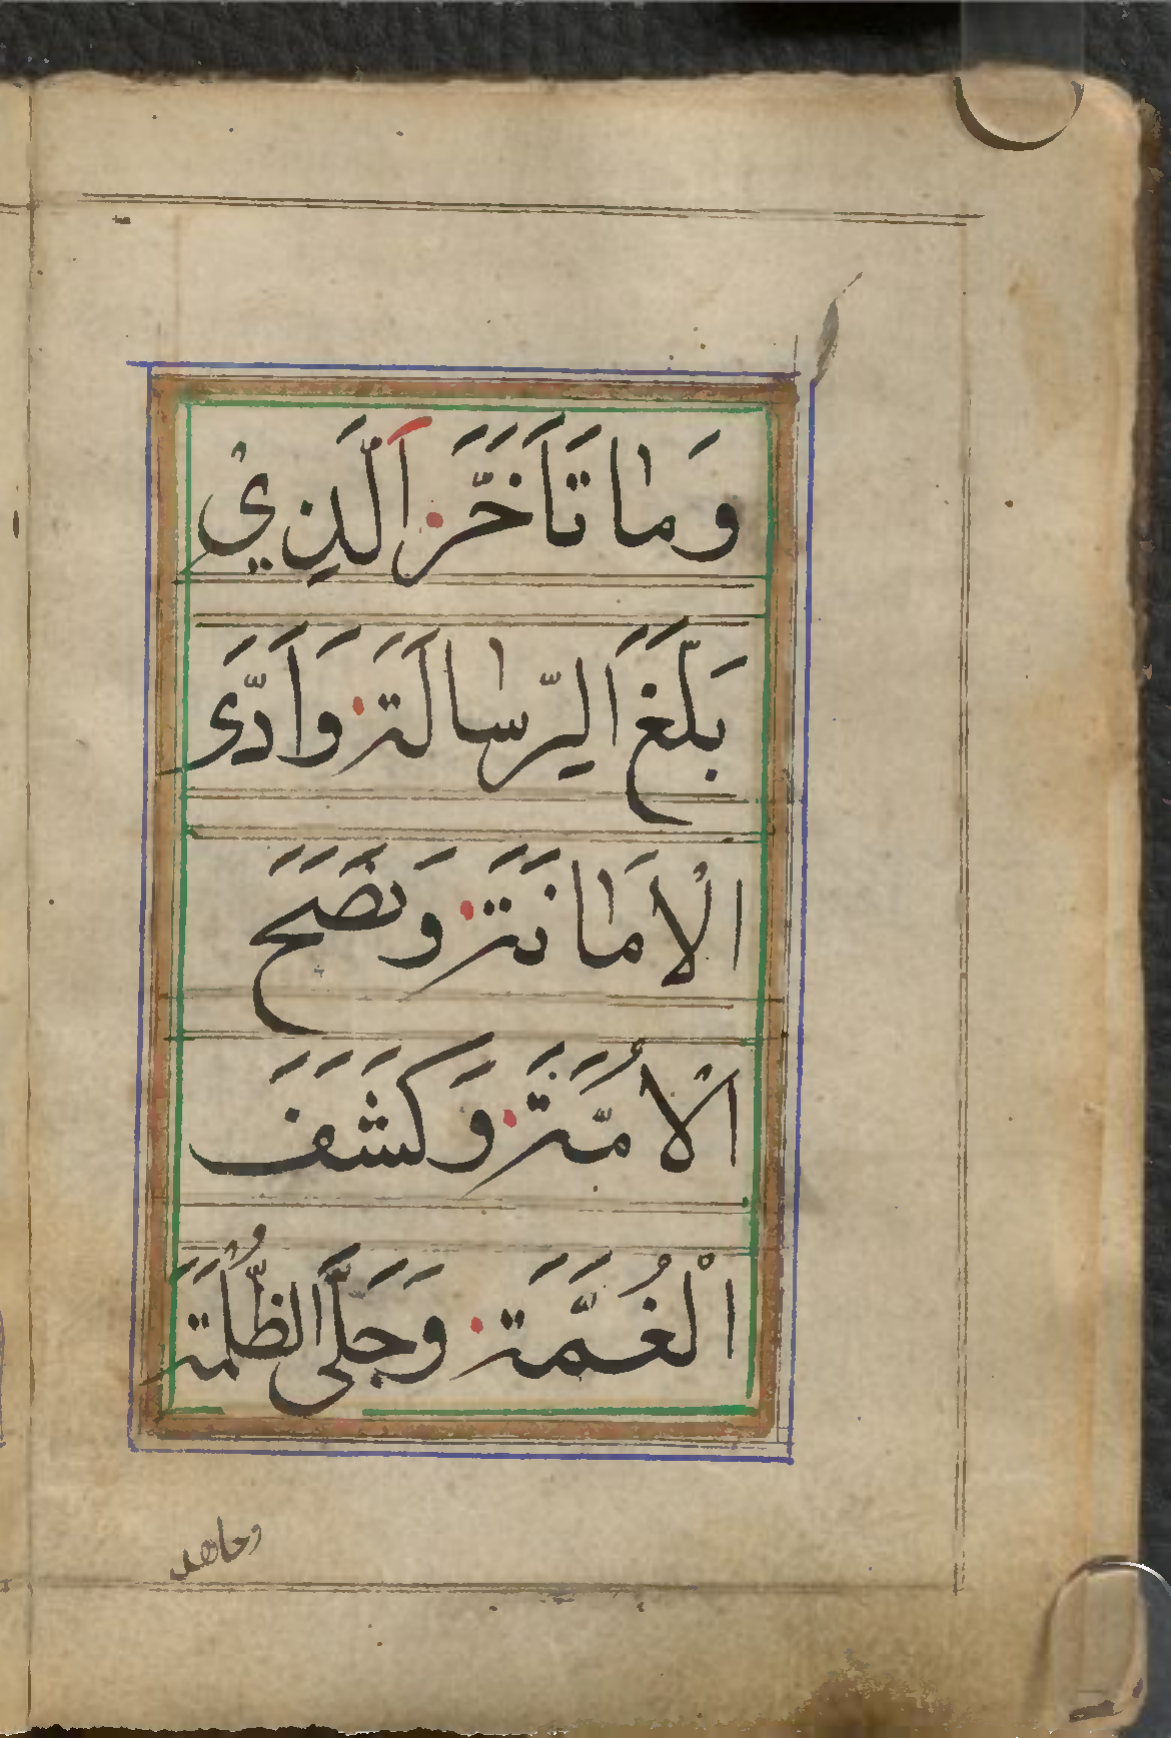 وَمَا تَاَخَّرَ اَلَّذِيْ
بَلَّغَ الرِّسَالَةَ وَاَدَّى
الْاَمَانَةَ وَنَصَحَ
الْاُمَّةَ وَكَشَفَ
الْغُمَّةَ وَجَلَّى الظُّلْمَةَ
وجاهد